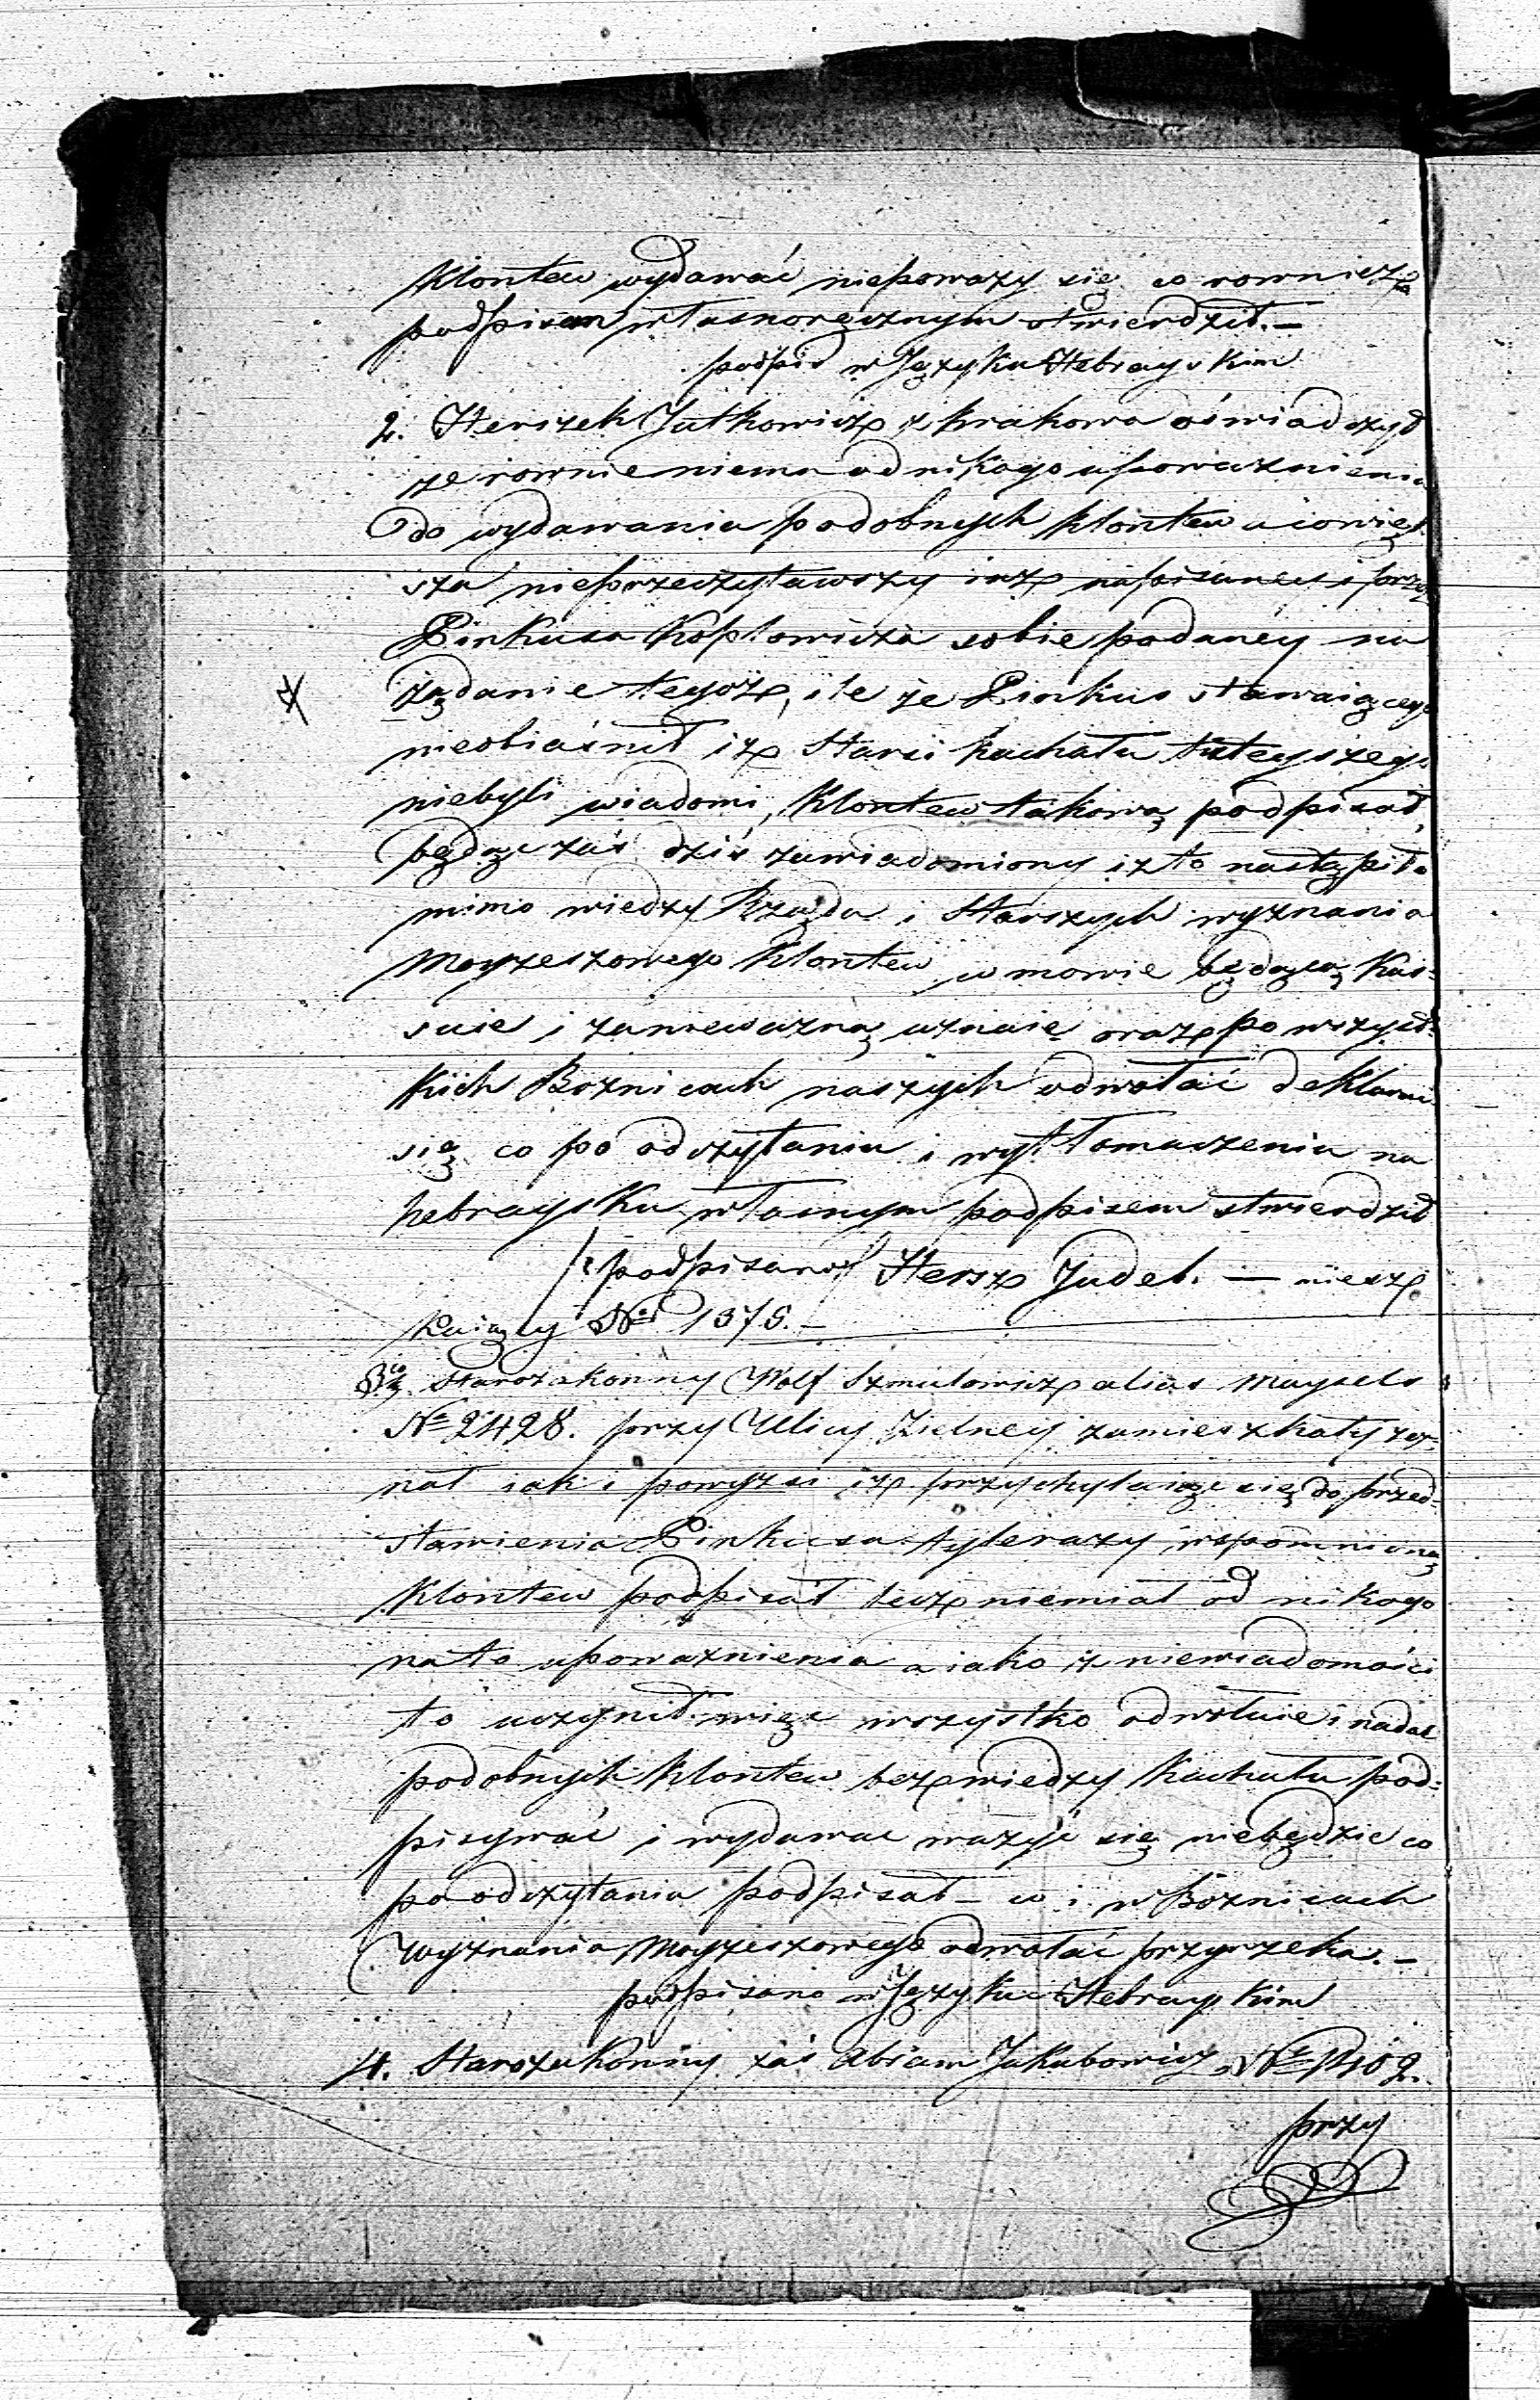 Klontew wydawać niepoważy się co rowniesz
podpisem własnoręcznym stwierdził. —
podpis w Języku Hebrayskim
2. Herszek Jutkowicz z Krakowa oświadczył
że rownie niema od nikogo upoważnienia
do wydawania podobnych Klontew a cowięk-
sza nieprzeczytawszy iuż napisaney i przez
Pinkusa Koplowicza sobie podaney na
żądanie tegoż, ile że Pinkus stawaiącego
nieobiaśnił iż Starsi Kachału tuteyszego
niebyli wiadomi, Klontew takową podpisał,
będąc zaś dziś zawiadomiony iż to nastąpiło
mimo wiedzy Rządu i Starszych wyznania
Moyżeszowego Klontew w mowie będącą Kas-
suie i zanieważną uznaie oraz po wszyst-
kich Boznicach naszych odwołać deklaruie
się co po odczytaniu i wytłomaczeniu na
hebraysku własnym podpisem stwierdził
/: podpisano :/ Hersz Judel. — miesz
kaiący Nr 1375. —
3. Starozakonny Wolf Szmulowicz alias Maysels
No 2428. przy Ulicy Zielney zamieszkały zez-
nał iak i powyższi iż przychylaiąc się do przed-
stawienia Pinkusa tylerazy wspomnioną
Klontew podpisał lecz niemiał od nikogo
na to upoważnienia a iako z niewiadomości
to uczynił więc wszystko odwołuie i nadal
podobnych Klontew bez wiedzy Kachału pod-
pisywać i wydawac ważyć się niebędzie co
po odczytaniu podpisał — co i w Boznicach
Wyznania Moyżeszowego odwołać przyrzeka. —
podpisano w Języku Hebrayskim
4. Starozakonny zaś Abram Jakubowicz No 1102.
przy